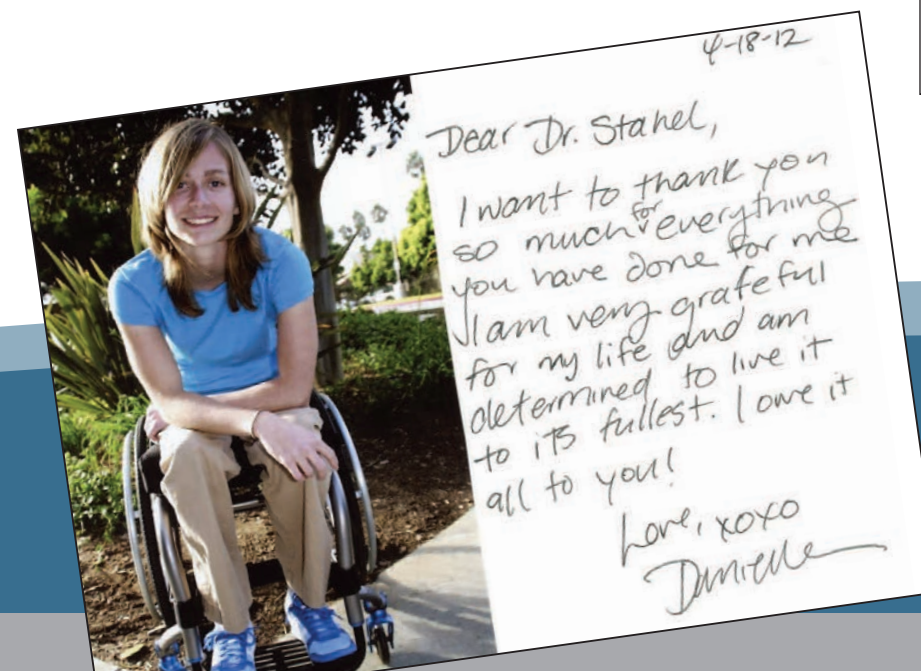 4-18-12
Dear Dr. Stahel,
I want to thank you
so much for everything
you have done for me
I am very grateful
for my life and am
determined to live it
to its fullest. I owe it
all to you!
Love, xoxo
Danielle